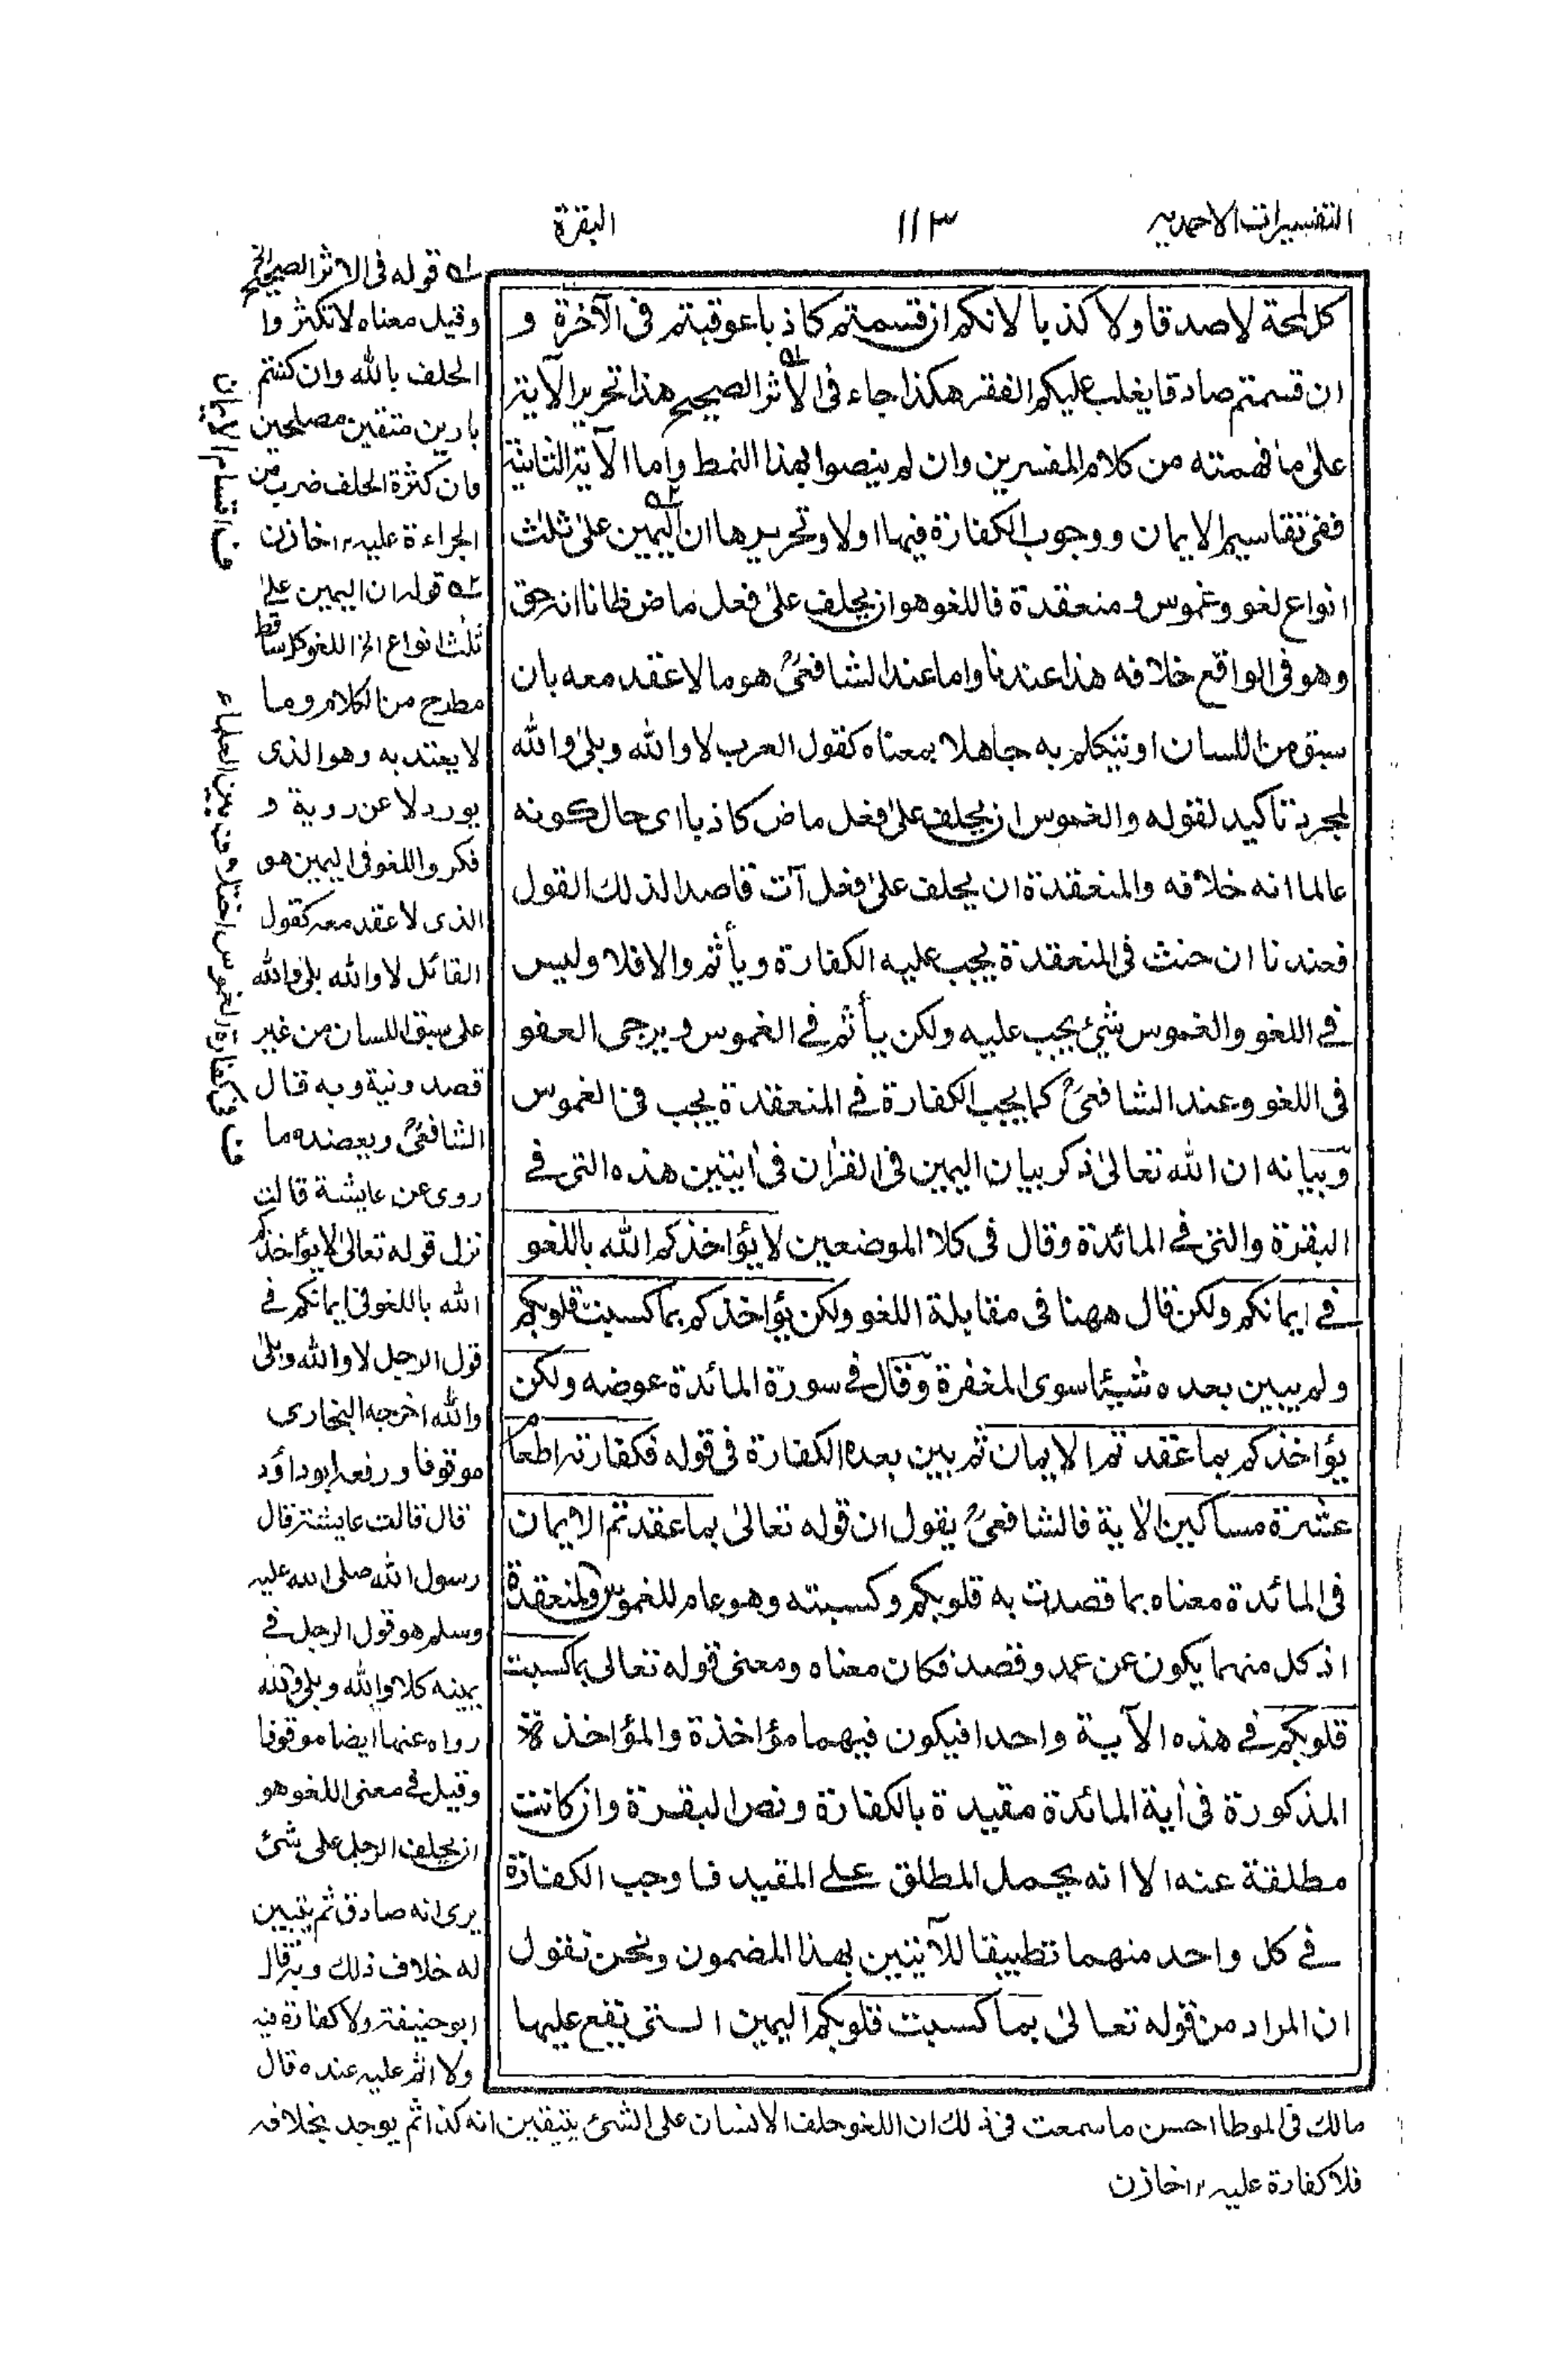 التفسيرات الاحمدية
١١٣
البقرة
كل لمحة لا صدقا ولا كذبا لانكم ان قسمتم كاذبا عوقبتم فى الآخرة و
ان قسمتم صادقا يغلب عليكم الفقر هكذا جاء فى الأثر الصحيح هذا تحرير الآية
على ما فهمته من كلام المفسرين وان لم ينصوا بهذا النمط واما الآية الثانية
ففى تقاسيم الايمان ووجوب الكفارة فيها اولا وتحريرها ان اليمين على ثلث
انواع لغو وغموس ومنعقدة فاللغو هو ان يحلف على فعل ماض ظانا انه حق
وهو فى الواقع خلافه هذا عندنا واما عند الشافعىؒ هو ما لا عقد معه بان
سبق من اللسان او يتكلم به جاهلا بمعناه كقول العرب لا والله وبلى والله
لمجرد تاكيد لقوله والغموس ان يحلف على فعل ماض كاذبا اى حال كونه
عالما انه خلافه والمنعقدة ان يحلف على فعل آت قاصدا لذلك القول
فعندنا ان حنث فى المنعقدة يجب عليه الكفارة ويأثم والا فلا وليس
فى اللغو والغموس شئ يجب عليه ولكن يأثم فى الغموس ويرجى العفو
فى اللغو وعند الشافعىؒ كما يجب الكفارة فى المنعقدة يجب فى الغموس
وبيانه ان الله تعالى ذكر بيان اليمين فى القران فى ايتين هذه التى فى
البقرة والتى فى المائدة وقال فى كلا الموضعين لا يؤاخذكم الله باللغو
فى ايمانكم ولكن قال ههنا فى مقابلة اللغو ولكن يؤاخذكم بما كسبت قلوبكم
ولم يبين بعده شيئا سوى المغفرة وقال فى سورة المائدة عوضه ولكن
يؤاخذكم بما عقدتم الايمان ثم بين بعده الكفارة فى قوله فكفارته اطعام
عشرة مساكين الاية فالشافعىؒ يقول ان قوله تعالى بما عقدتم الايمان
فى المائدة معناه بما قصدت به قلوبكم وكسبته وهو عام للغموس والمنعقدة
اذ كل منهما يكون عن عمد وقصد فكان معناه ومعنى قوله تعالى بما كسبت
قلوبكم فى هذه الآية واحدا فيكون فيهما مؤاخذة والمؤاخذة
المذكورة فى أية المائدة مقيدة بالكفارة ونص البقرة وان كانت
مطلقة عنه الا انه يحمل المطلق على المقيد فاوجب الكفارة
فى كل واحد منهما تطبيقا للآيتين بهذا المضمون ونحن نقول
ان المراد من قوله تعالى بما كسبت قلوبكم اليمين التى يقع عليها
١ه قوله فى الاثر الصحيح الخ
وقيل معناه لا تكثروا
الحلف بالله وان كنتم
بارين متقين مصلحين
فان كثرة الحلف ضرب من
الجراءة عليه ١٢ خازن
٢ه قوله ان اليمين على
ثلث انواع الخ اللغو كل ساقط
مطرح من الكلام وما
لا يعتد به وهو الذى
يورد لا عن روية و
فكر واللغو فى اليمين هو
الذى لا عقد معه كقول
القائل لا والله بلى والله
على سبق اللسان من غير
قصد ونية وبه قال
الشافعىؒ ويعضده ما
روى عن عايشة قالت
نزل قوله تعالى لا يؤاخذكم
الله باللغو فى ايمانكم فى
قول الرجل لا والله وبلى
والله اخرجه البخارى
موقوفا ورفعه ابوداؤد
قال قالت عايشة قال
رسول الله صلى الله عليه
وسلم هو قول الرجل فى
يمينه كلا والله وبلى والله
رواه عنها ايضا موقوفا
وقيل فى معنى اللغو هو
ان يحلف الرجل على شئ
يرى انه صادق ثم يتبين
له خلاف ذلك وبه قال
ابو حنيفة ولا كفارة فيه
ولا اثم عليه عنده قال
مالك فى الموطا احسن ما سمعت فى ذلك ان اللغو حلف الانسان على الشئ يتيقن انه كذا ثم يوجد بخلافه
فلا كفارة عليه ١٢ خازن
ف اقسام الايمان
ف فى كفارة الغموس اختلاف بين العلماء